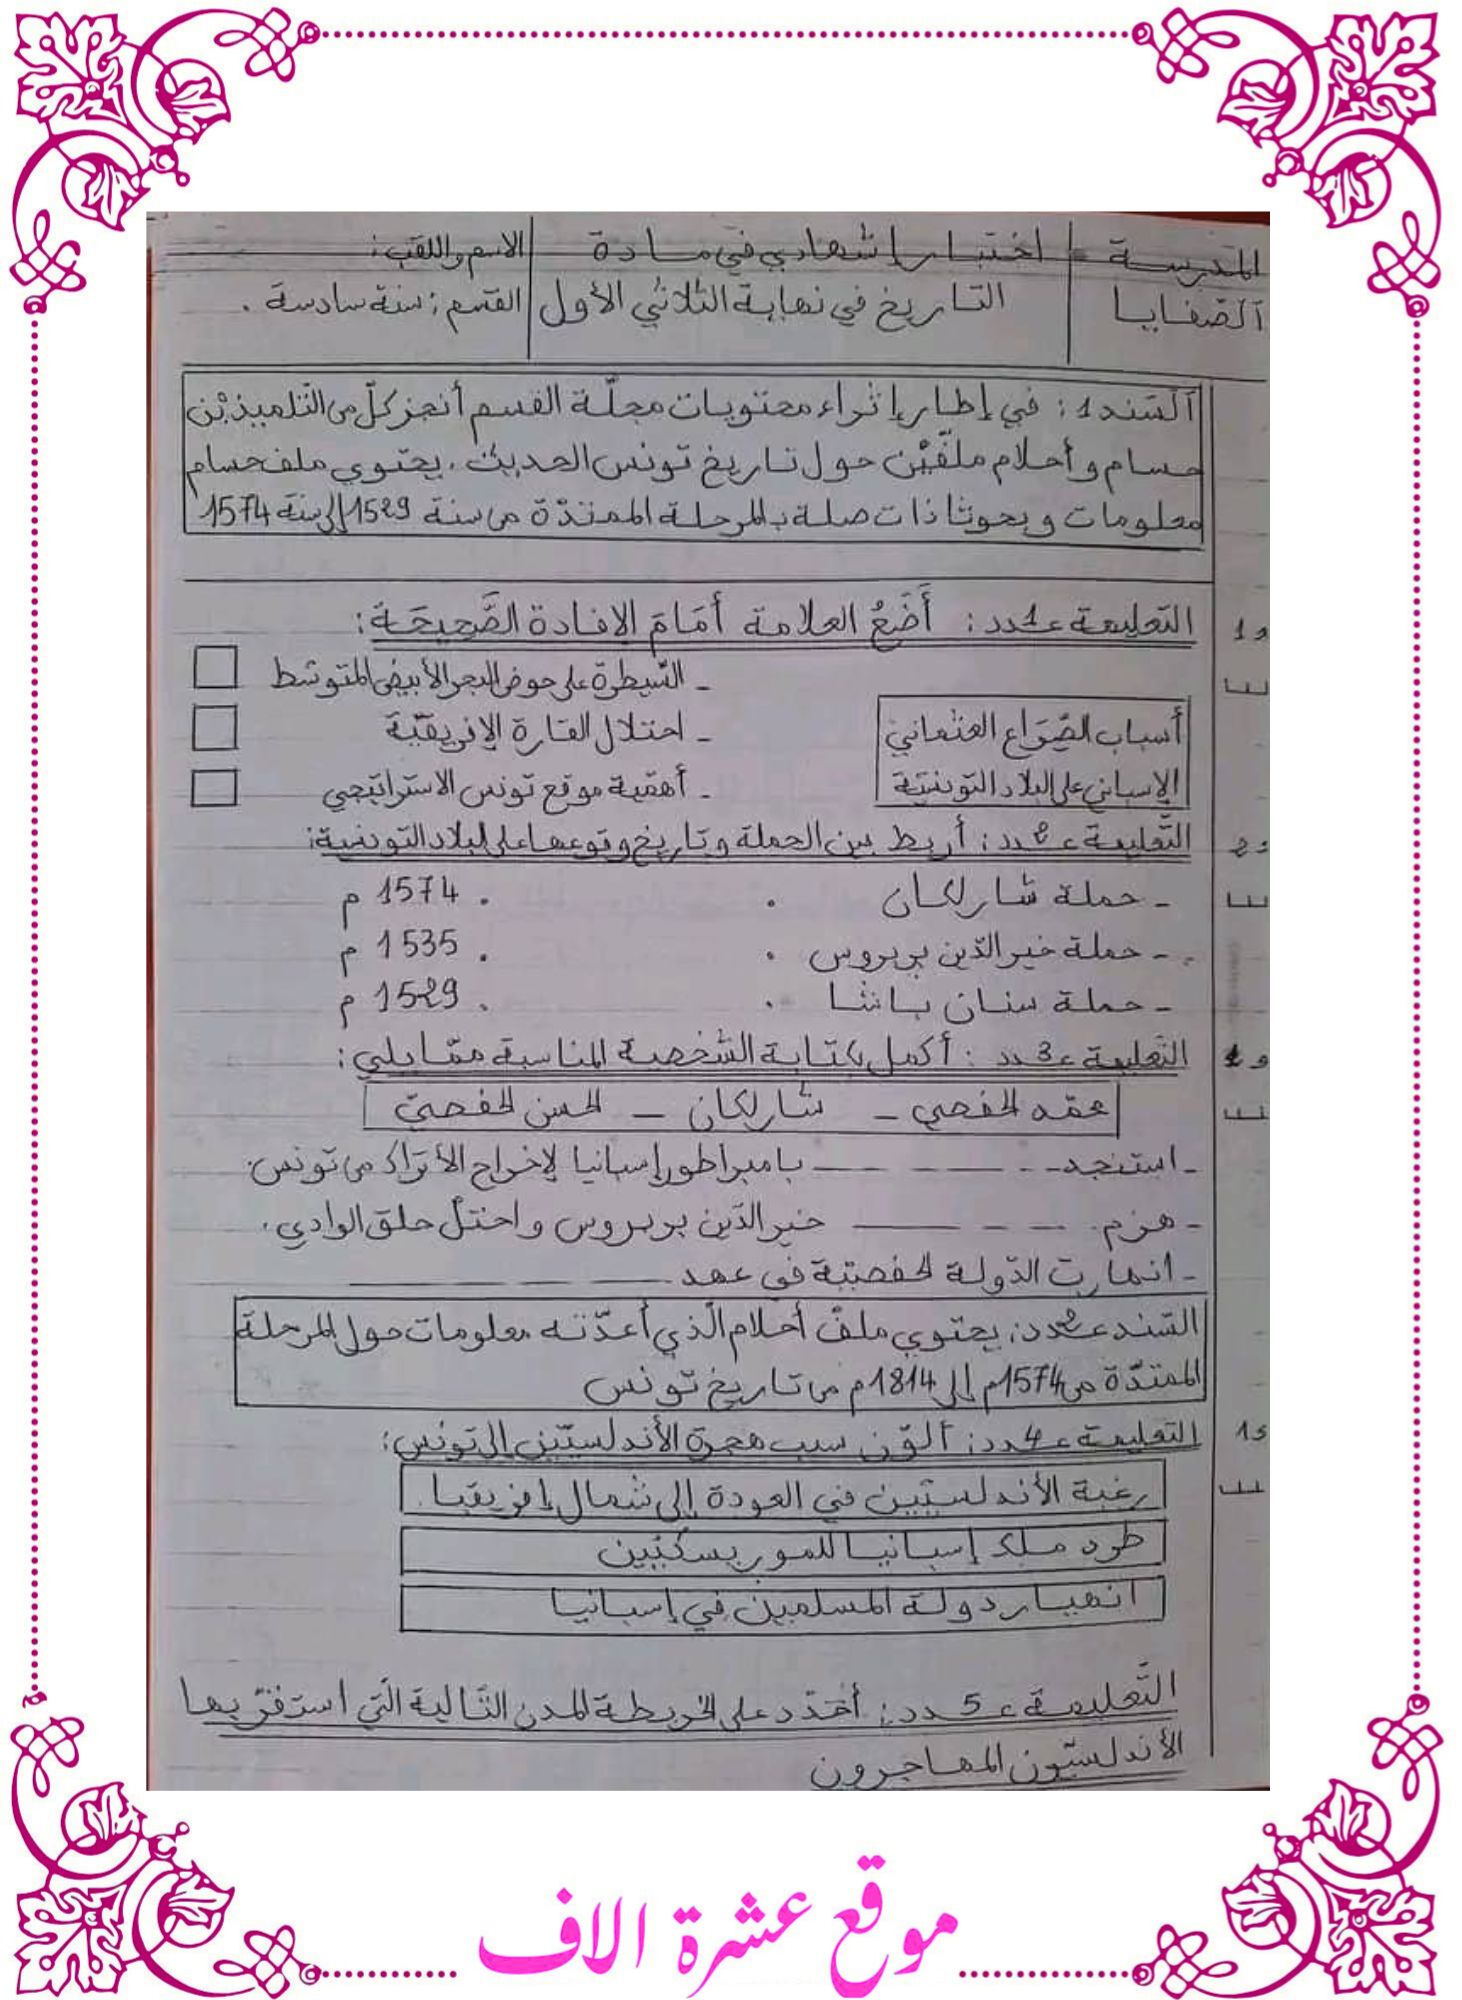 المدرسة | اختبار إشهادي في مادة | الاسم واللقب:
الصفايا | التاريخ في نهاية الثلاثي الأول | القسم: سنة سادسة.
السّند 1: في إطار إثراء محتويات مجلّة القسم أنجز كلّ من التّلميذيْن
حسام وأحلام ملفّيْن حول تاريخ تونس الحديث. يحتوي ملف حسام
معلومات وبحوثا ذات صلة بالمرحلة الممتدّة من سنة 1529 إلى سنة 1574
التّعليمة عـ1ـدد: أَضَعُ العلامة أمَامَ الإفادة الصَّحِيحَة:
ـ السّيطرة على حوض البحر الأبيض المتوسّط
أسباب الصّراع العثماني
ـ احتلال القارة الإفريقيّة
الإسباني على البلاد التونسيّة
ـ أهمّية موقع تونس الاستراتيجي
التّعليمة عـ2ـدد: أربط بين الحملة وتاريخ وقوعها على البلاد التونسية:
ـ حملة شارلكان . . 1574 م
ـ حملة خير الدّين بربروس . . 1535 م
ـ حملة سنان باشا . . 1529 م
التّعليمة عـ3ـدد: أكمل بكتابة الشّخصية المناسبة ممّا يلي:
محمّد الحفصي ـ شارلكان ـ الحسن الحفصيّ
ـ استنجد ـ ـ ـ ـ ـ بامبراطور إسبانيا لإخراج الأتراك من تونس.
ـ هزم ـ ـ ـ ـ خير الدّين بربروس واحتلّ حلق الوادي.
ـ انهارت الدّولة الحفصيّة في عهد ـ ـ ـ ـ ـ
السّند عـ2ـدد: يحتوي ملفّ أحلام الّذي أعدّته معلومات حول المرحلة
الممتدّة من 1574م إلى 1814م من تاريخ تونس
التعليمة عـ4ـدد: ألوّن سبب هجرة الأندلسيّين إلى تونس:
رغبة الأندلسيّين في العودة إلى شمال إفريقيا.
طرد ملك إسبانيا للموريسكيّين
انهيار دولة المسلمين في إسبانيا
التّعليمة عـ5ـدد: أحدّد على الخريطة المدن التّالية الّتي استقرّ بها
الأندلسيّون المهاجرون
موقع عشرة الاف